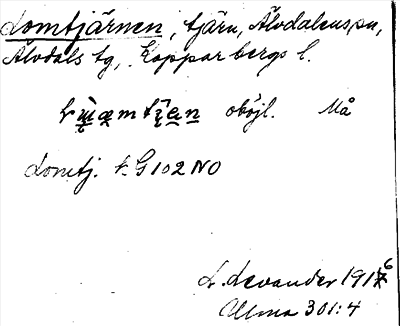 Lomtjärnen, tjärn, Älvdalens sn,
Älvdals tg, Kopparbergs l.
oböjl. Må
Lomtj. k. G102 NO
L. Levander 1916
Ulma 301:4